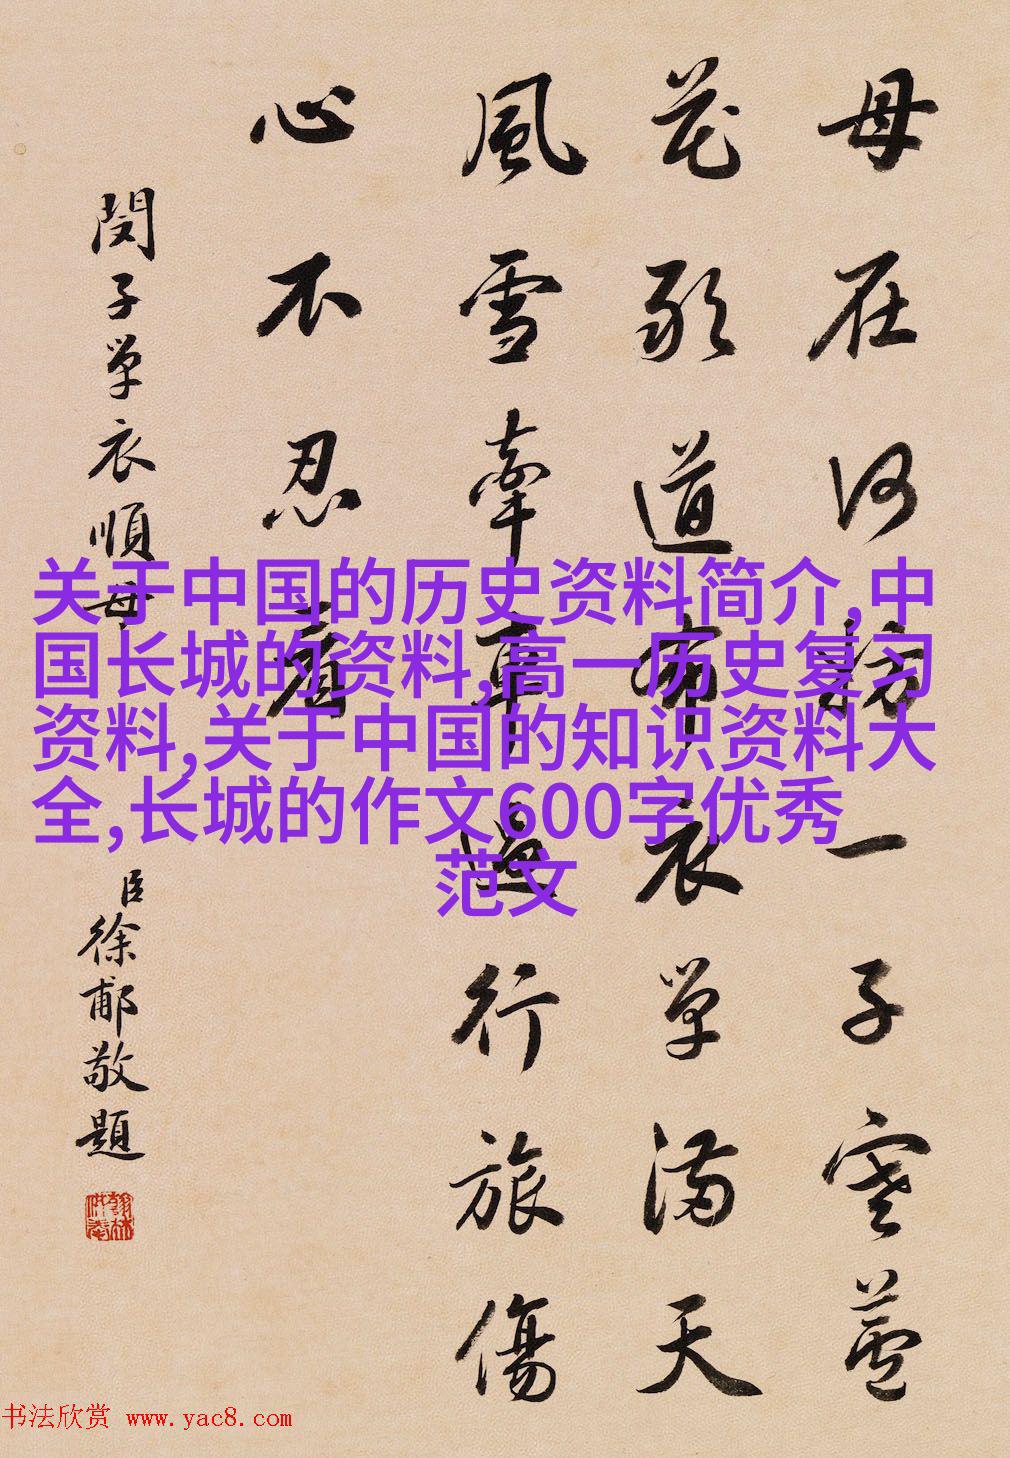 母在何妨一子寒蘆
花敢道布衣單滿天
風雪牽車過行旅傷
心不忍看
閔子單衣順母
臣徐郙敬題
关于中国的历史资料简介,中
国长城的资料,高一历史复习
资料,关于中国的知识资料大
全,长城的作文600字优秀
范文
书法欣赏 www.yac8.com